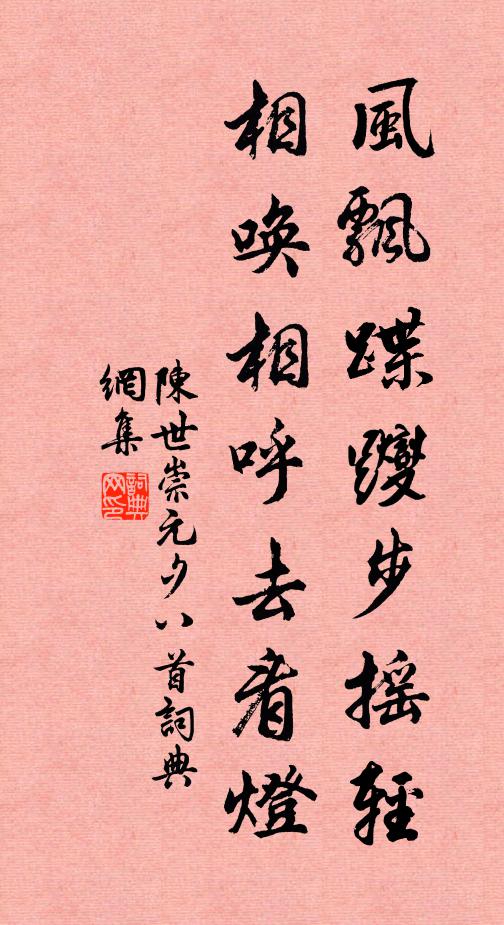 風飄蹀躞步搖輕
相喚相呼去看燈
陳世崇元夕八首詞典
網集
詞典
网印